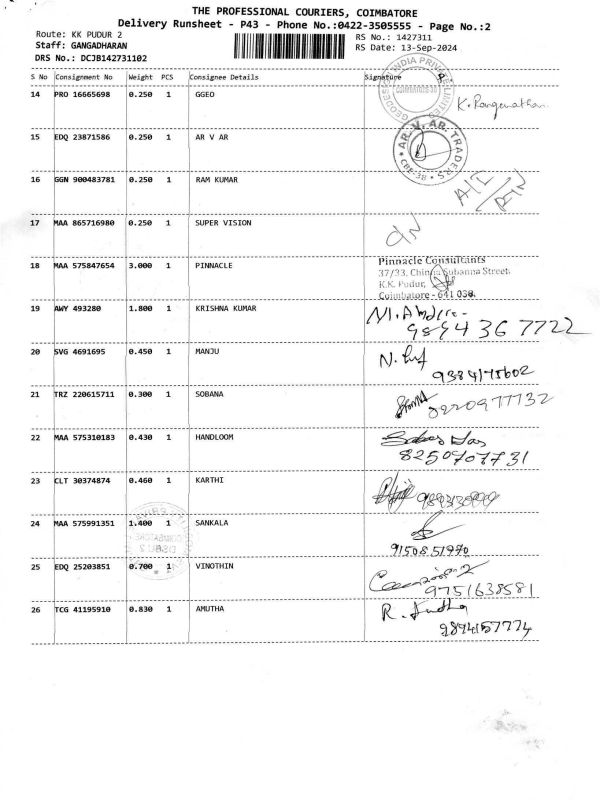 THE PROFESSIONAL COURIERS, COIMBATORE
Delivery Runsheet - P43 - Phone No.:0422-3505555 - Page No.:2
Route: KK PUDUR 2
Staff: GANGADHARAN
DRS No.: DCJB142731102
RS No.: 1427311
RS Date: 13-Sep-2024
S No Consignment No Weight PCS Consignee Details Signature
14 PRO 16665698 0.250 1 GGEO K. Ranganathan
15 EDQ 23871586 0.250 1 AR V AR AR. V. AR. TRADERS CBE-38
16 GGN 900483781 0.250 1 RAM KUMAR
17 MAA 865716980 0.250 1 SUPER VISION
18 MAA 575847654 3.000 1 PINNACLE Pinnacle Consultants
37/33, Chinna Subanna Street,
K.K. Pudur,
Coimbatore - 641 038.
19 AWY 493280 1.800 1 KRISHNA KUMAR
9894 36 7722
20 SVG 4691695 0.450 1 MANJU
9384175602
21 TRZ 220615711 0.300 1 SOBANA 8220977732
22 MAA 575310183 0.430 1 HANDLOOM
8250707731
23 CLT 30374874 0.460 1 KARTHI
24 MAA 575991351 1.400 1 SANKALA
9150851970
25 EDQ 25203851 0.700 1 VINOTHIN
9751638581
26 TCG 41195910 0.830 1 AMUTHA
9894157774